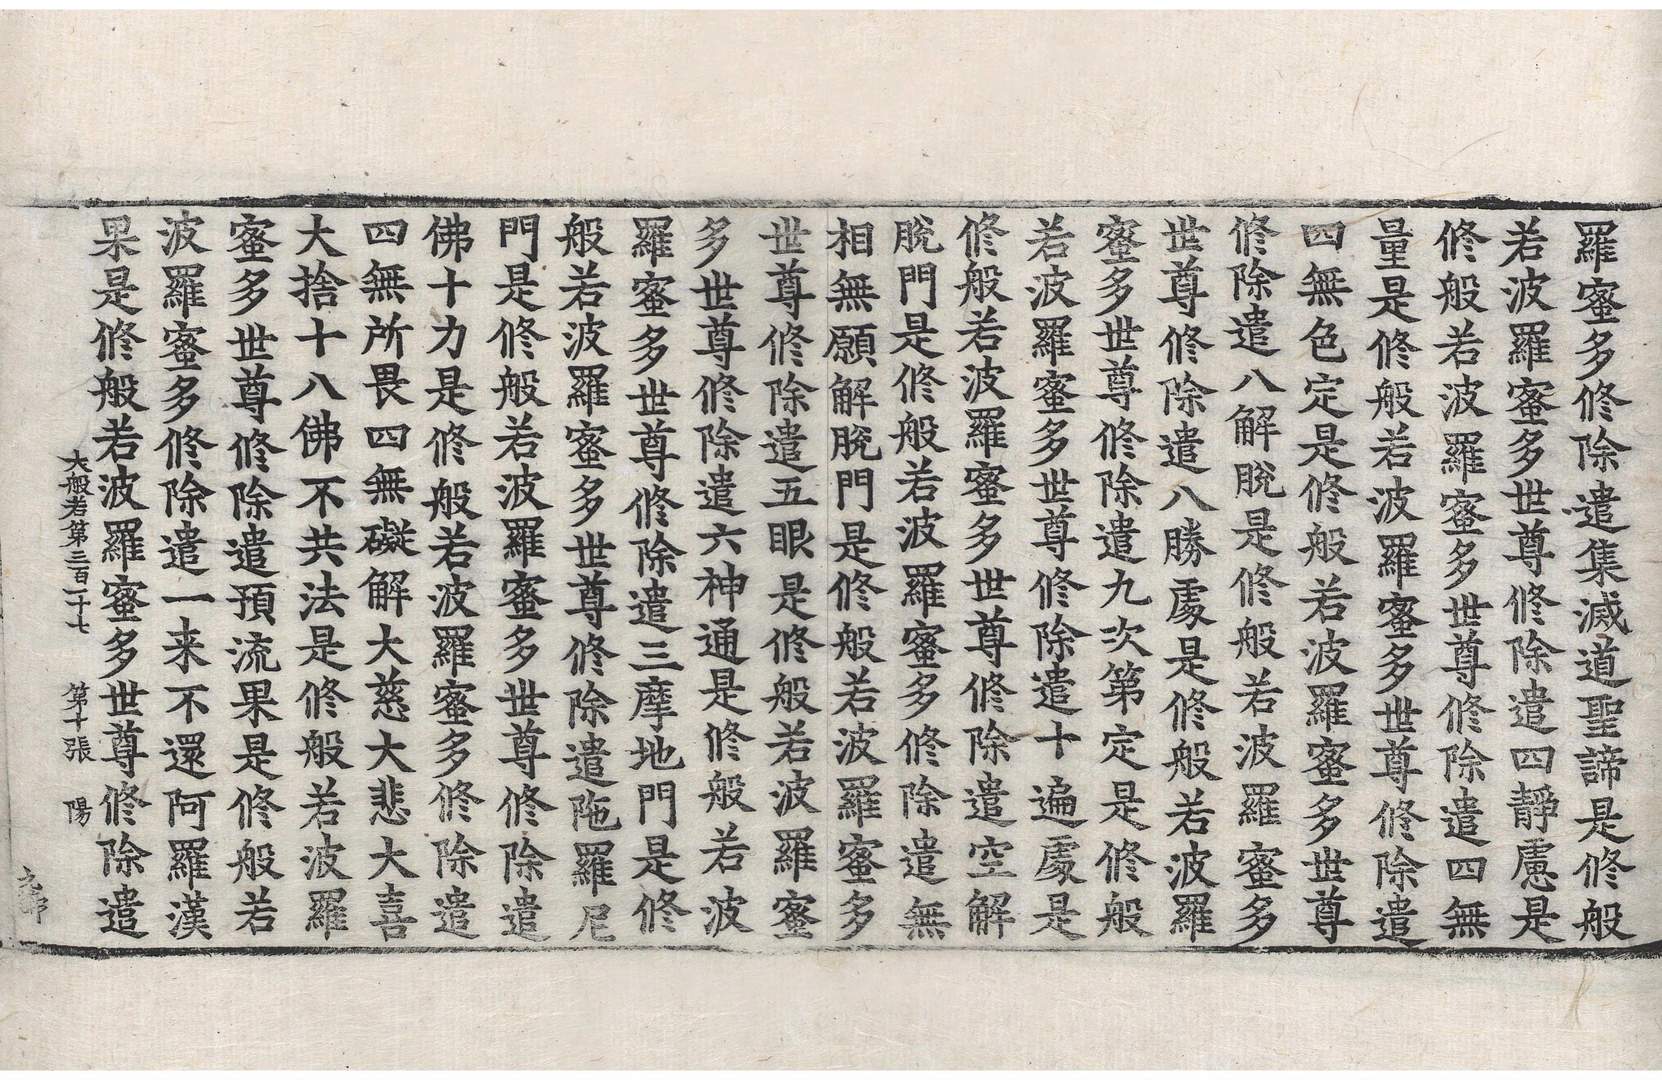 羅蜜多修除遣集滅道聖諦是修般
若波羅蜜多世尊修除遣四靜慮是
修般若波羅蜜多世尊修除遣四無
量是修般若波羅蜜多世尊修除遣
四無色定是修般若波羅蜜多世尊
修除遣八解脫是修般若波羅蜜多
世尊修除遣八勝處是修般若波羅
蜜多世尊修除遣九次第定是修般
若波羅蜜多世尊修除遣十遍處是
修般若波羅蜜多世尊修除遣空解
脫門是修般若波羅蜜多修除遣無
相無願解脫門是修般若波羅蜜多
世尊修除遣五眼是修般若波羅蜜
多世尊修除遣六神通是修般若波
羅蜜多世尊修除遣三摩地門是修
般若波羅蜜多世尊修除遣陁羅尼
門是修般若波羅蜜多世尊修除遣
佛十力是修般若波羅蜜多修除遣
四無所畏四無礙解大慈大悲大喜
大捨十八佛不共法是修般若波羅
蜜多世尊修除遣預流果是修般若
波羅蜜多修除遣一来不還阿羅漢
果是修般若波羅蜜多世尊修除遣
大般若第三百二十七 第十張 陽